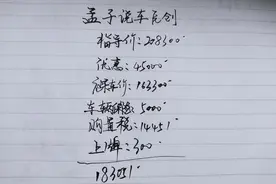 孟子说车原创
指导价:208300
优惠:45000
裸车价:163300
车辆保险:5000
购置税:14451
上牌:300
183051